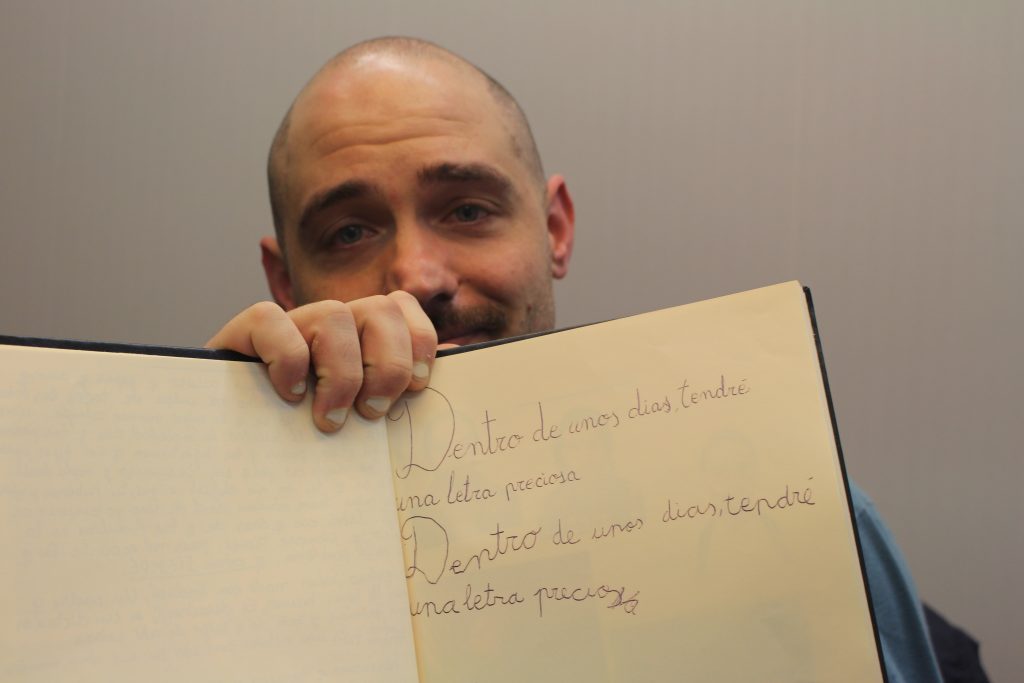 Dentro de unos dias, tendré
una letra preciosa
Dentro de unos dias, tendré
una letra